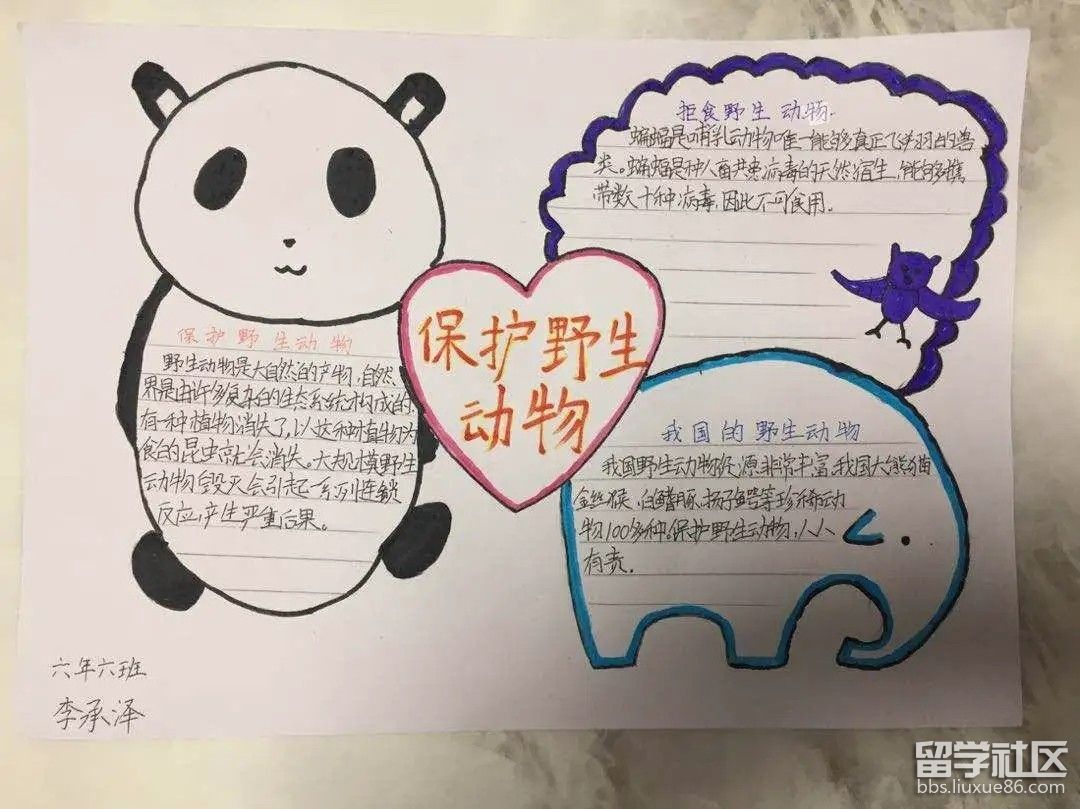 保护野生动物
野生动物是大自然的产物,自然
界是由许多复杂的生态系统构成的.
有一种植物消失了,以这种植物为
食的昆虫就会消失。大规模野生
动物毁灭会引起一系列连锁
反应,产生严重后果。
保护野生
动物
拒食野生动物.
蝙蝠是哺乳动物唯一能够真正飞翔的兽
类。蝙蝠是种人畜共患病毒的天然宿主,能够携
带数十种病毒,因此不可食用.
我国的野生动物
我国野生动物资源非常丰富,我国大熊猫
金丝猴、白鳍豚、扬子鳄等珍稀动
物100多种。保护野生动物,人人
有责.
六年六班
李承泽
留学社区
bbs.liuxue86.com